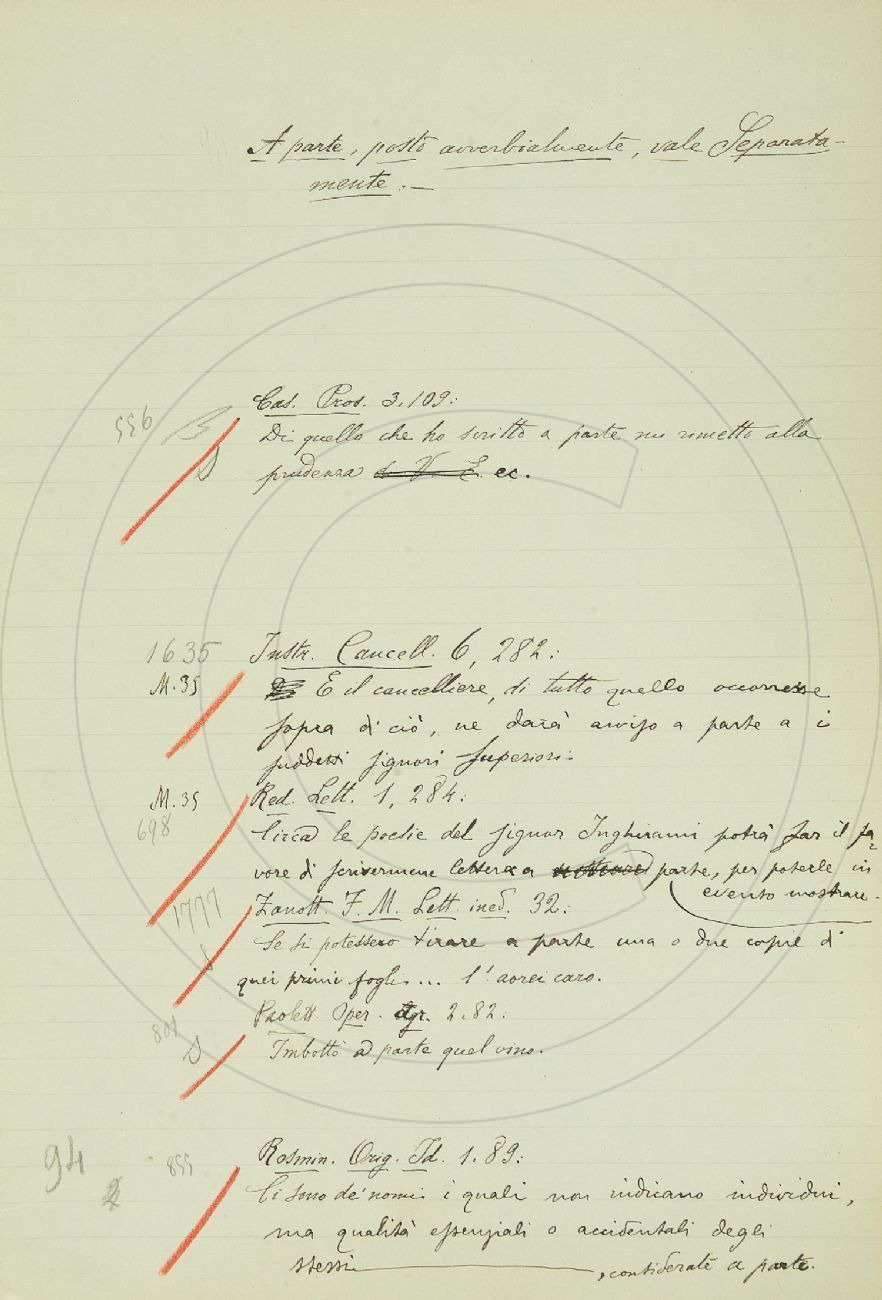 A parte, posto avverbialmente, vale Separata-
mente. —
Cas. Pros. 3.109:
556
Di quello che ho scritto a parte mi rimetto alla
prudenza di V. E. ec.
1635
Instr. Cancell. 6, 282:
M. 35
E il cancelliere, di tutto quello occorresse
sopra di ciò, ne darà avviso a parte a i
suddetti signori superiori.
M. 35
Red. Lett. 1, 284:
698
Circa le poesie del signor Inghirami potrà far il fa-
vore di scrivermene lettera a parte, per poterle in
evento mostrare.
1777
Zanott. F. M. Lett. ined. 32:
Se si potessero tirare a parte una o due copie di
quei primi fogli... l'avrei caro.
Paolett. Oper. Agr. 2.82:
801
Imbottò a parte quel vino.
94
855
Rosmin. Orig. Id. 1.89:
Ci sono de' nomi i quali non indicano individui,
ma qualità essenziali o accidentali degli
stessi, considerate a parte.